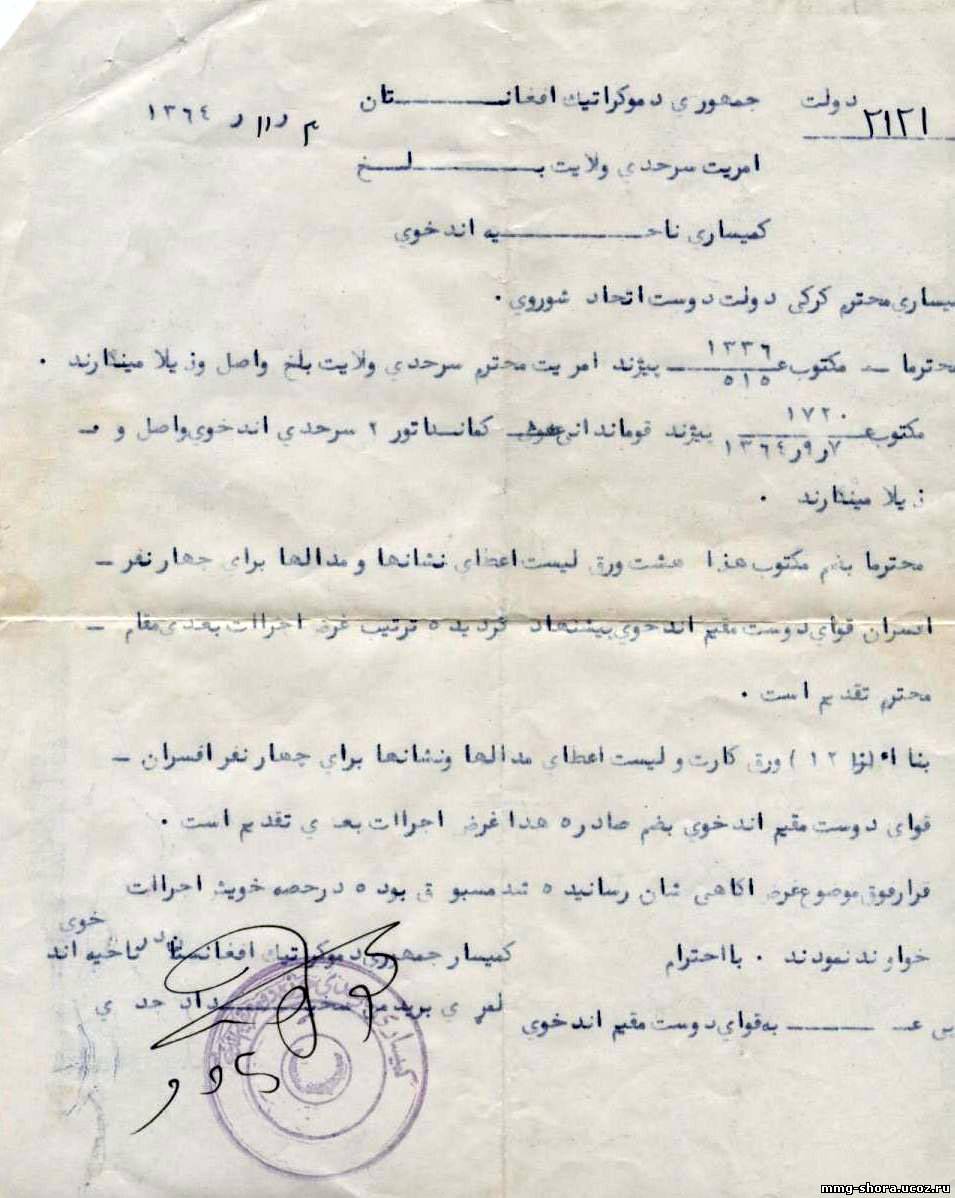 دولت جمهوري دموكراتيك افغانـــــتان
٢١٢١
١٣٦٤ ر ١١ ر
امريت سرحدي ولايت بـــــلـــخ
كميساري ناحـــــيه اندخوي
يساري محترم كركي دولت دوست اتحاد شوروي .
محترما ـ مكتوب عـ ١٣٣٦ / ٥١٥ ـ بيژند امريت محترم سرحدي ولايت بلخ واصل وذيلا مينگارند .
مكتوب عـ ١٧٢٠ / ٧ر٩ر١٣٦٤ بيژند قوماندانى كمانداتور ٢ سرحدي اندخوي واصل و ـ
ذيلا مينگارند .
محترما بضم مكتوب هذا هشت ورق ليست اعطاي نشانها و مدالها براي چهار نفر ـ
افسران قواي دوست مقيم اندخوي پيشنهاد گرديده ترتيب غرض اجراات بعدي مقام ـ
محترم تقديم است .
بنا اً ( ١٢ ) ورق كارت و ليست اعطاي مدالها ونشانها براي چهار نفر افسران ـ
قواي دوست مقيم اندخوي بضم صادره هذا غرض اجراات بعدي تقديم است .
قرار فوق موضوع غرض اگاهى شان رسانيده شد مسبوق بوده درحصه خويش اجراات
خواوند نمودند . با احترام
كميسار جمهوري دموكراتيك افغانستان در ناحيه اند خوى
لمړي بريدمن
داد جدي
عـ ـــ به قواي دوست مقيم اندخوي
mmg-shora.ucoz.ru